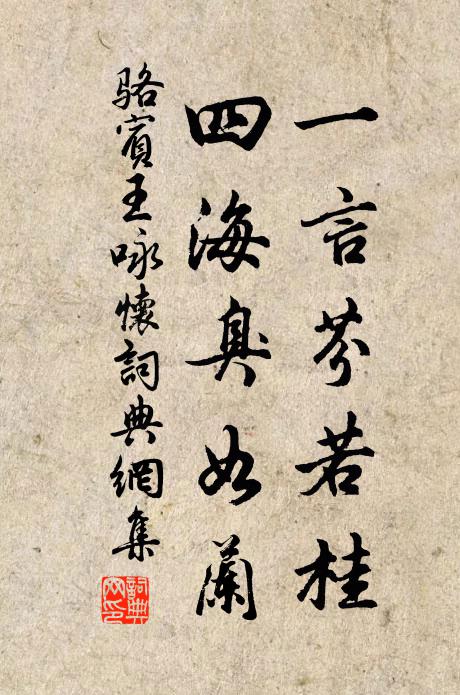 一言芬若桂
四海臭如蘭
駱賓王咏懷詞典網集
詞典網印